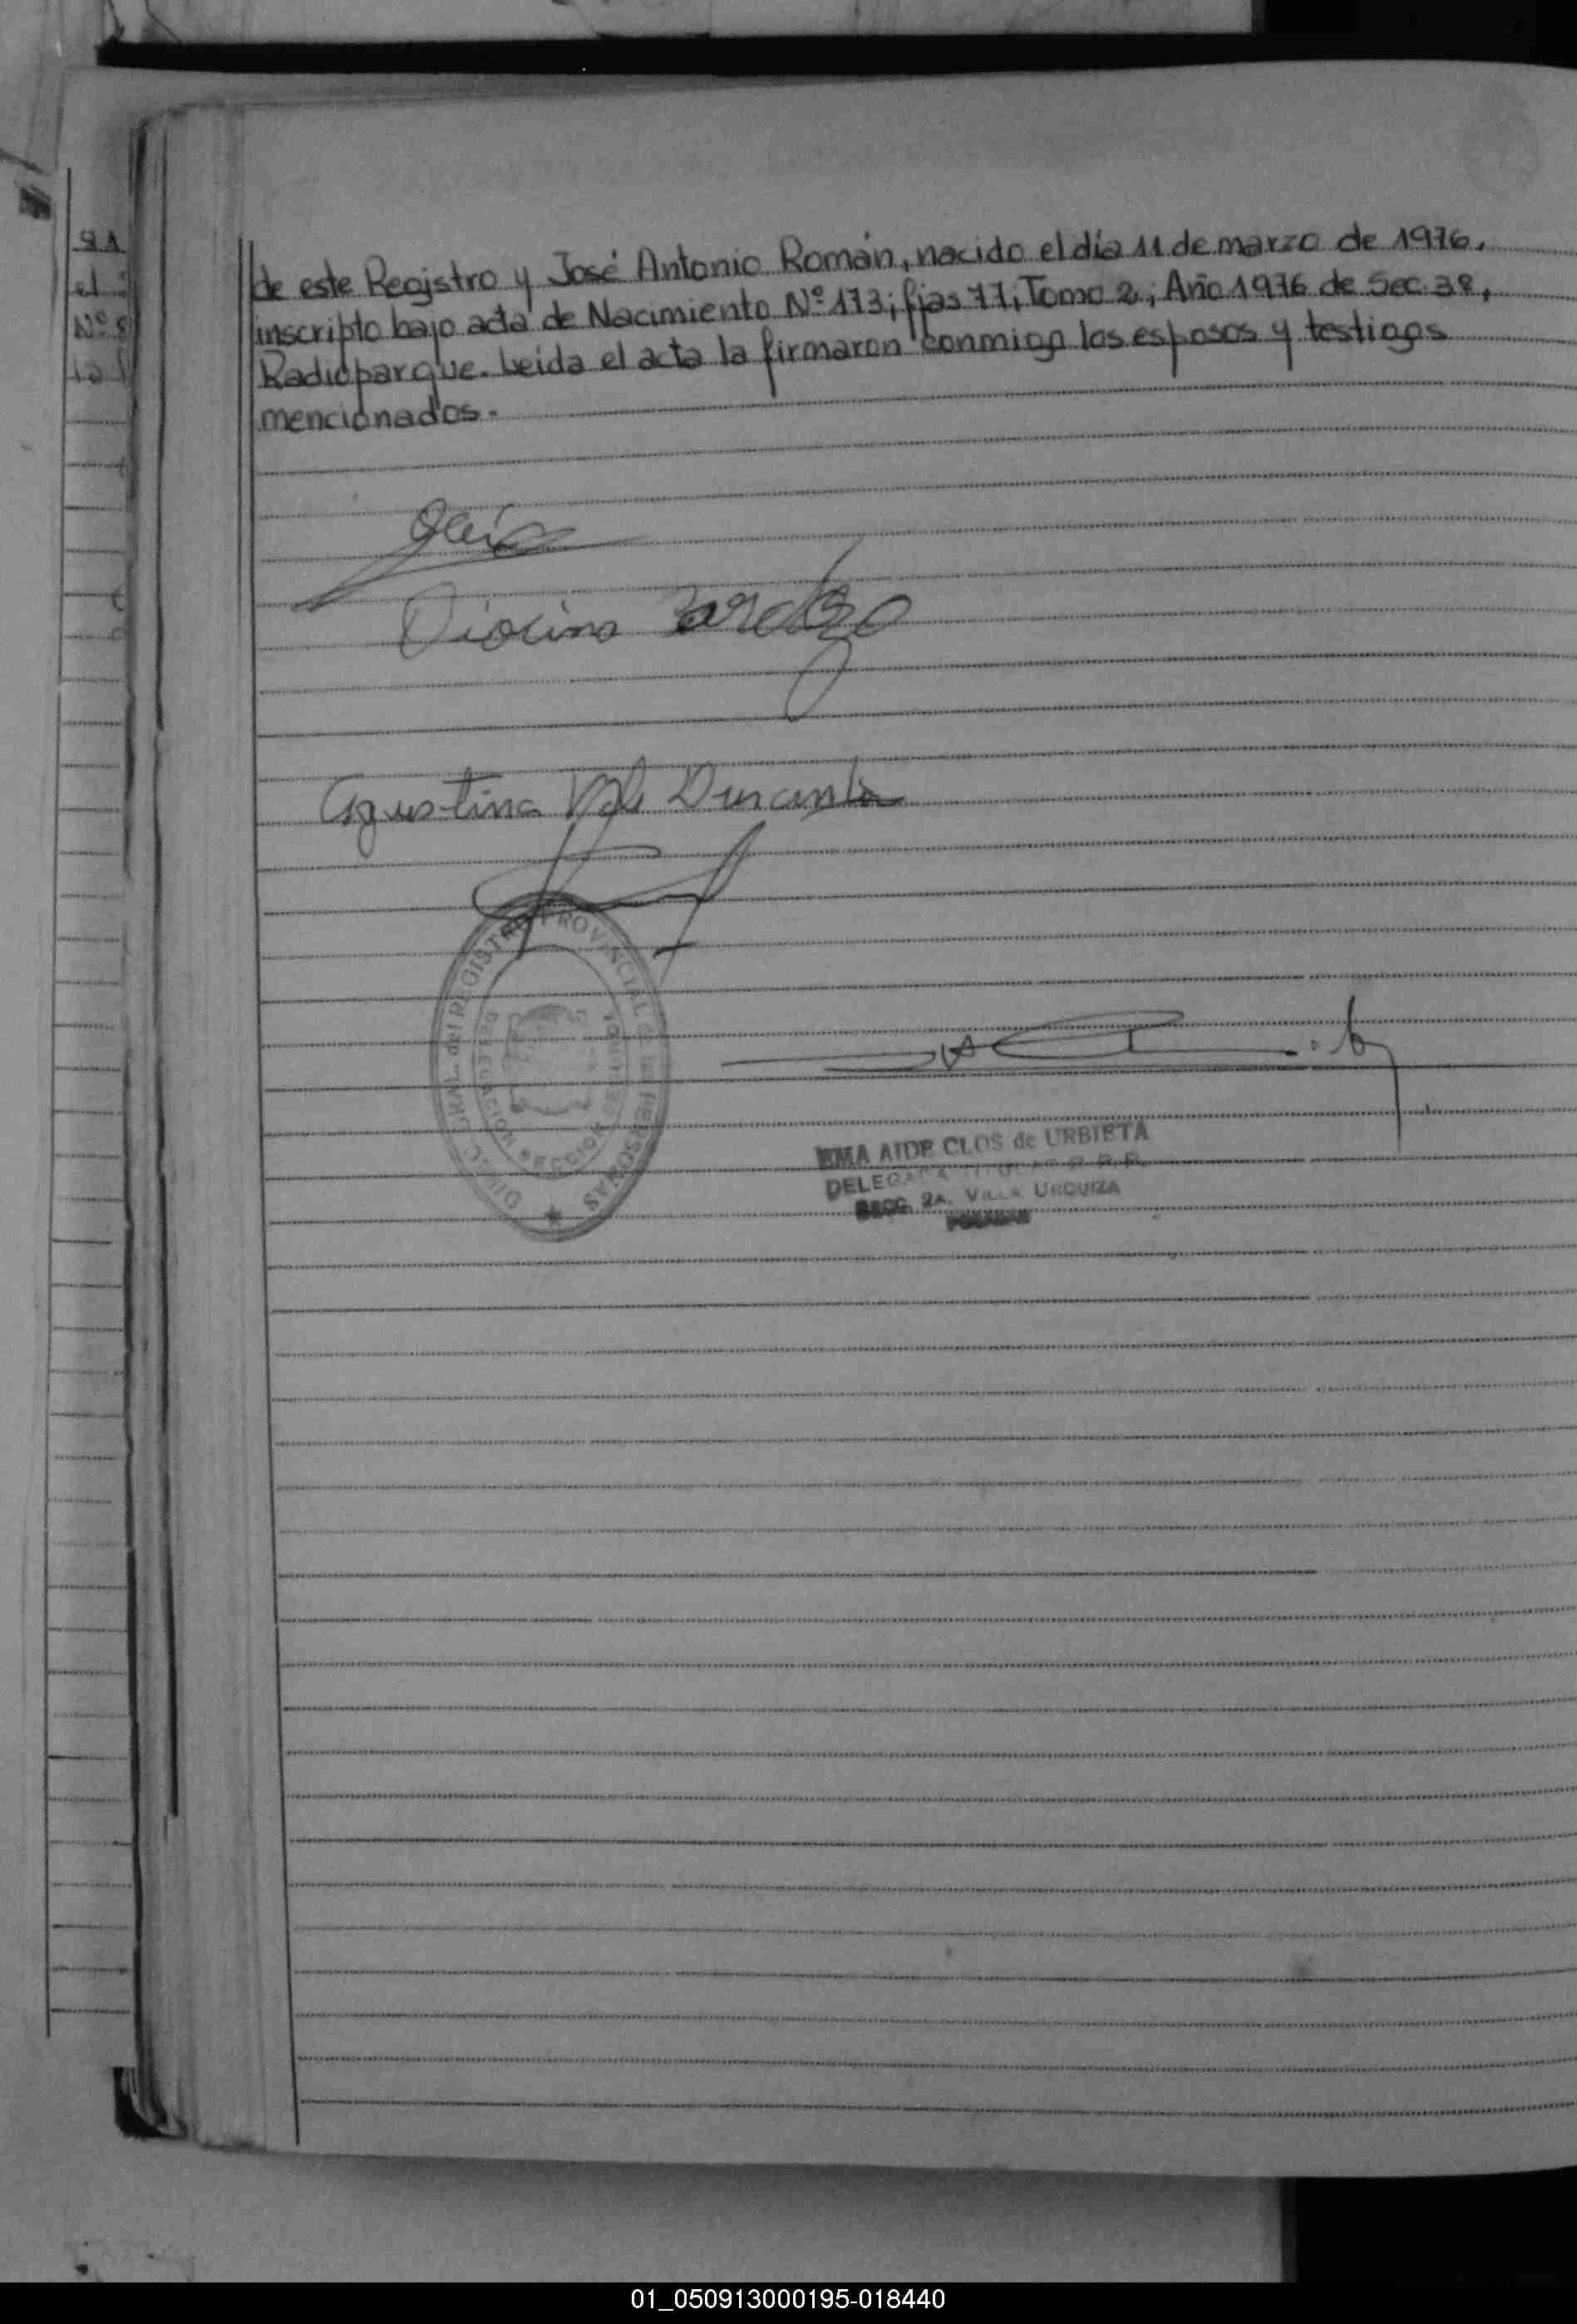 de este Registro y José Antonio Román, nacido el día 11 de marzo de 1976,
inscripto bajo acta de Nacimiento Nº 173; fjas 77; Tomo 2; Año 1976 de Sec 3ª,
Radioparque. Leída el acta la firmaron conmigo los esposos y testigos
mencionados.
Agustina
REGISTRO PROVINCIAL de las PERSONAS
AIDE CLOS de URBIETA
DELEGADA TITULAR R. P. P.
SECC. 2A. VILLA URQUIZA
POSADAS
el
Nº
01_050913000195-018440